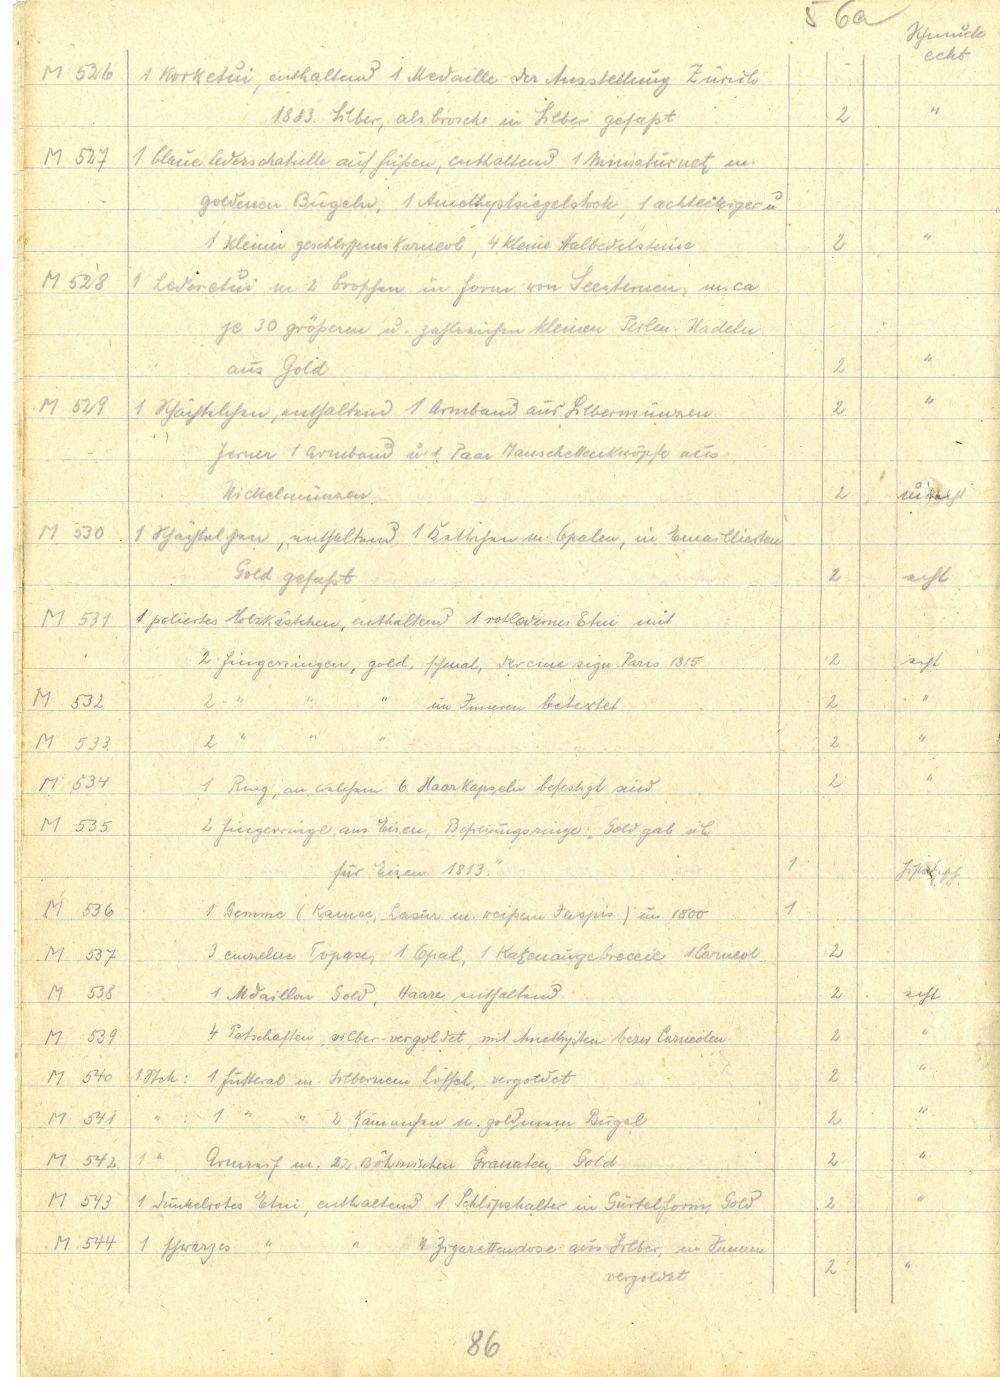 5 6a
Schmuck
echt
M 526 1 Korketui, enthaltend 1 Medaille der Ausstellung Zürich
1883. Silber, als brosche in Silber gefaßt 2 "
M 527 1 blaue Lederschatulle auf füßen, enthaltend 1 Miniaturnetz m.
goldenen Bügeln, 1 Amethystsiegelstock, 1 achteckiger u
1 kleiner geschliffener Karneol, 4 kleine Halbedelsteine 2 "
M 528 1 Lederetui m 2 broschen in form von Seesternen, m. ca
je 30 größeren u. zahlreichen kleinen Perlen. Nadeln
aus Gold 2 "
M 529 1 Schächtelchen, enthaltend 1 Armband aus Silbermünzen 2 "
ferner 1 Armband u. 1 Paar Manschettenknöpfe aus
Nickelmünzen 2 unecht
M 530 1 Schächtelchen, enthaltend 1 Kettchen m. Opalen, in Emailliertem
Gold gefaßt 2 echt
M 531 1 poliertes Holzkästchen, enthaltend 1 rotledernes Etui mit
2 fingerringen, gold, schmal, der eine sign. Paris 1815 2 echt
M 532 2 " " " im Inneren betextet 2 "
M 533 2 " " " 2 "
M 534 1 Ring, an welchem 6 Haarkapseln befestigt sind 2 "
M 535 2 fingerringe aus Eisen, Befreiungsringe "Gold gab ich
für Eisen 1813." 1
M 536 1 Gemme (Kamee, Lasur m. weißem Jaspis) um 1800 1
M 537 3 einzelne Topase, 1 Opal, 1 Katzenaugebreccie 1 Carneol 2
M 538 1 Mdaillon Gold, Haare enthaltend 2 echt
M 539 4 Petschaften, silber-vergoldet, mit Amethysten bezw Carneolen 2 "
M 540 1 Stck: 1 futteral m. silbernem Löffel, vergoldet 2 "
M 541 " : 1 " " 2 Kämmchen m. goldenem Bügel 2 "
M 542 1 " Armreif m. 22 Böhmischen Granaten, Gold 2 "
M 543 1 dunkelrotes Etui, enthaltend 1 Schlipshalter in Gürtelform, Gold 2 "
M 544 1 schwarzes " " 1 Zigarettendose aus Silber, im Inneren
vergoldet 2 "
86